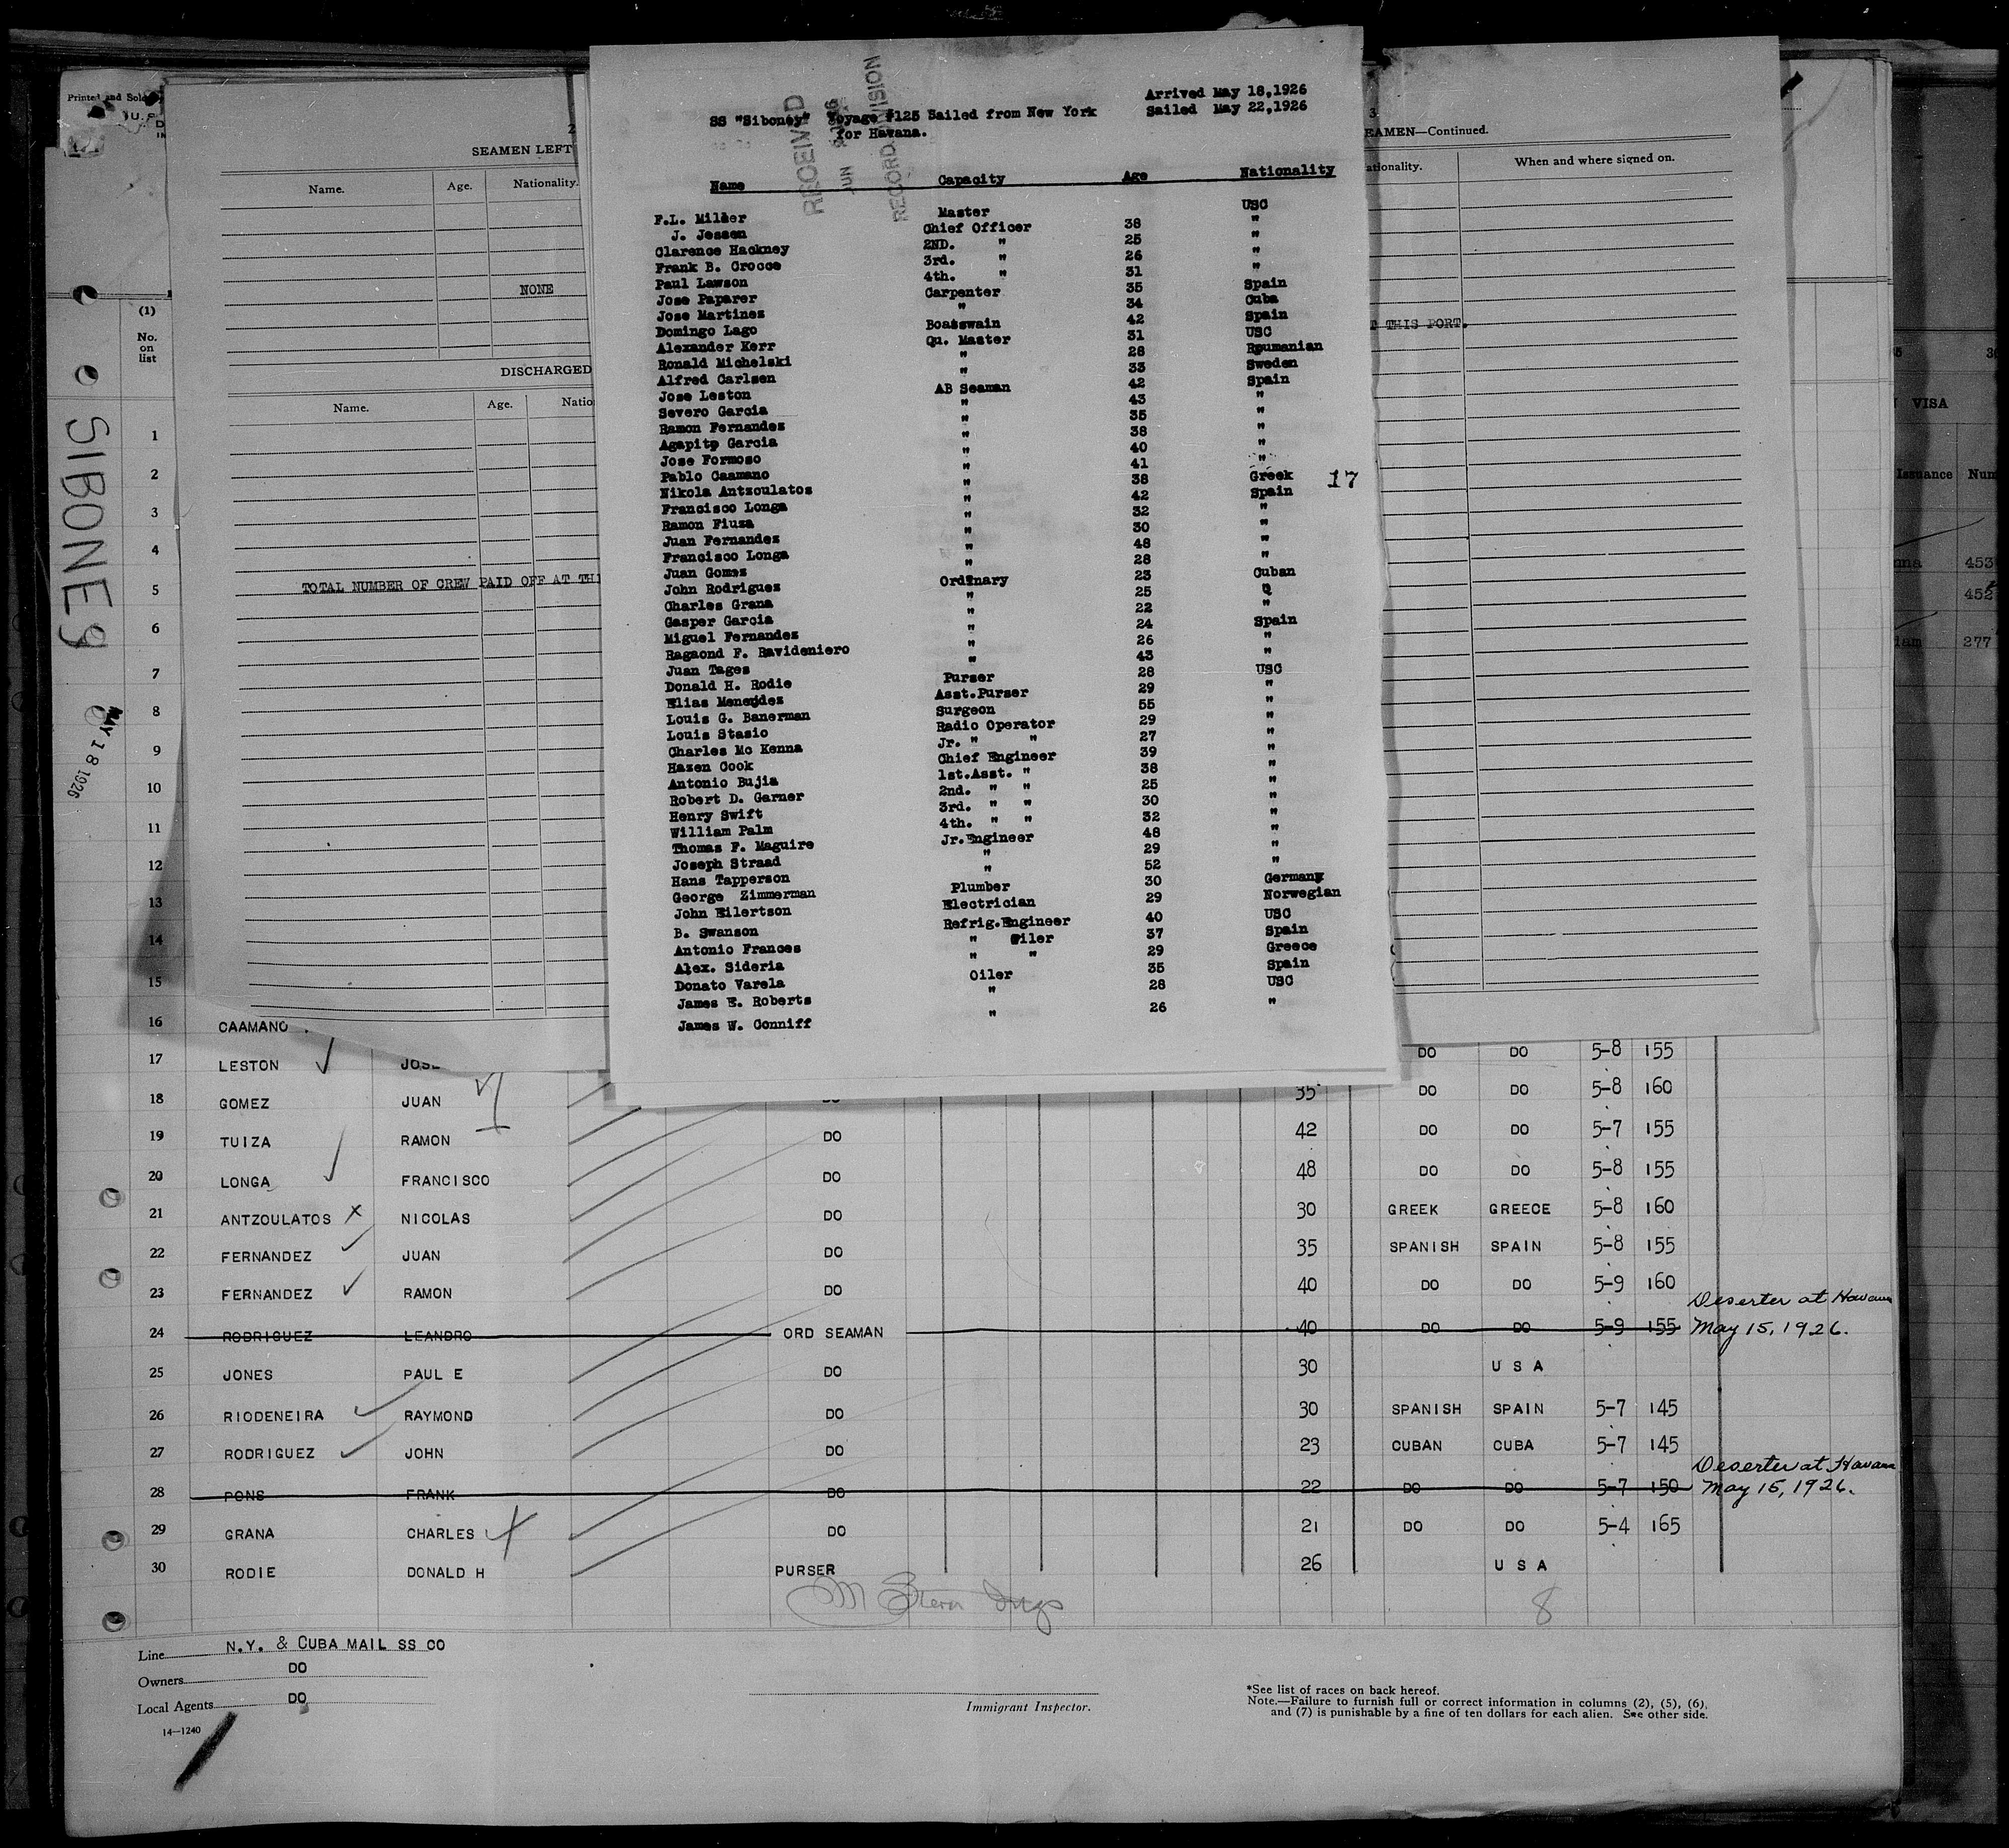 Printed and Sold
SIBONEY
MAY 18 1926
2
SEAMEN LEFT
Name. Age. Nationality.
NONE
DISCHARGED
Name. Age. Natio
TOTAL NUMBER OF CREW PAID OFF AT THI
3
EAMEN—Continued.
ationality. When and where signed on.
T THIS PORT.
VISA
Issuance Num
453
452
277
RECEIVED
JUN
RECORD DIVISION
Arrived May 18,1926
SS "Siboney" Voyage #125 Sailed from New York Sailed May 22,1926
for Havana.
Name Capacity Age Nationality
F.L. Miller Master USC
J. Jessen Chief Officer 38 "
Clarence Hackney 2ND. " 25 "
Frank B. Crocce 3rd. " 26 "
Paul Lawson 4th. " 31 "
Jose Paparer Carpenter 35 Spain
Jose Martinez " 34 Cuba
Domingo Lago Boatswain 42 Spain
Alexander Kerr Qu. Master 31 USC
Ronald Michelski " 28 Roumanian
Alfred Carlsen " 33 Sweden
Jose Leston AB Seaman 42 Spain
Severo Garcia " 43 "
Ramon Fernandez " 35 "
Agapito Garcia " 38 "
Jose Formoso " 40 "
Pablo Caamano " 41 "
Nikola Antzoulatos " 38 Greek 17
Francisco Longa " 42 Spain
Ramon Fiuza " 32 "
Juan Fernandez " 30 "
Francisco Longa " 48 "
Juan Gomez " 28 "
John Rodriguez Ordinary 23 Cuban
Charles Grana " 25 "
Gasper Garcia " 22 "
Miguel Fernandez " 24 Spain
Ragaond F. Ravideniero " 26 "
Juan Tages " 43 "
Donald H. Rodie Purser 28 USC
Elias Menendez Asst.Purser 29 "
Louis G. Banerman Surgeon 55 "
Louis Stasio Radio Operator 29 "
Charles Mc Kenna Jr. " " 27 "
Hazen Cook Chief Engineer 39 "
Antonio Bujia 1st.Asst. " 38 "
Robert D. Garner 2nd. " " 25 "
Henry Swift 3rd. " " 30 "
William Palm 4th. " " 32 "
Thomas F. Maguire Jr.Engineer 48 "
Joseph Straad " 29 "
Hans Tapperson " 52 "
George Zimmerman Plumber 30 Germany
John Eilertson Electrician 29 Norwegian
B. Swanson Refrig.Engineer 40 USC
Antonio Frances " Oiler 37 Spain
Alex. Sideria " " 29 Greece
Donato Varela Oiler 35 Spain
James E. Roberts " 28 USC
James W. Conniff " 26 "
(1)
No.
on
list
1
2
3
4
5
6
7
8
9
10
11
12
13
14
15
16 CAAMANO
17 LESTON JOSE DO DO 5-8 155
18 GOMEZ JUAN DO 35 DO DO 5-8 160
19 TUIZA RAMON DO 42 DO DO 5-7 155
20 LONGA FRANCISCO DO 48 DO DO 5-8 155
21 ANTZOULATOS NICOLAS DO 30 GREEK GREECE 5-8 160
22 FERNANDEZ JUAN DO 35 SPANISH SPAIN 5-8 155
23 FERNANDEZ RAMON DO 40 DO DO 5-9 160
24 RODRIGUEZ LEANDRO ORD SEAMAN 40 DO DO 5-9 155 Deserter at Havana May 15, 1926.
25 JONES PAUL E DO 30 U S A
26 RIODENEIRA RAYMOND DO 30 SPANISH SPAIN 5-7 145
27 RODRIGUEZ JOHN DO 23 CUBAN CUBA 5-7 145
28 PONS FRANK DO 22 DO DO 5-7 150 Deserter at Havana May 15, 1926.
29 GRANA CHARLES DO 21 DO DO 5-4 165
30 RODIE DONALD H PURSER 26 U S A
M Stern Insp 8
Line N.Y. & CUBA MAIL SS CO
Owners DO
Local Agents DO
14—1240
Immigrant Inspector.
*See list of races on back hereof.
Note.—Failure to furnish full or correct information in columns (2), (5), (6),
and (7) is punishable by a fine of ten dollars for each alien. See other side.